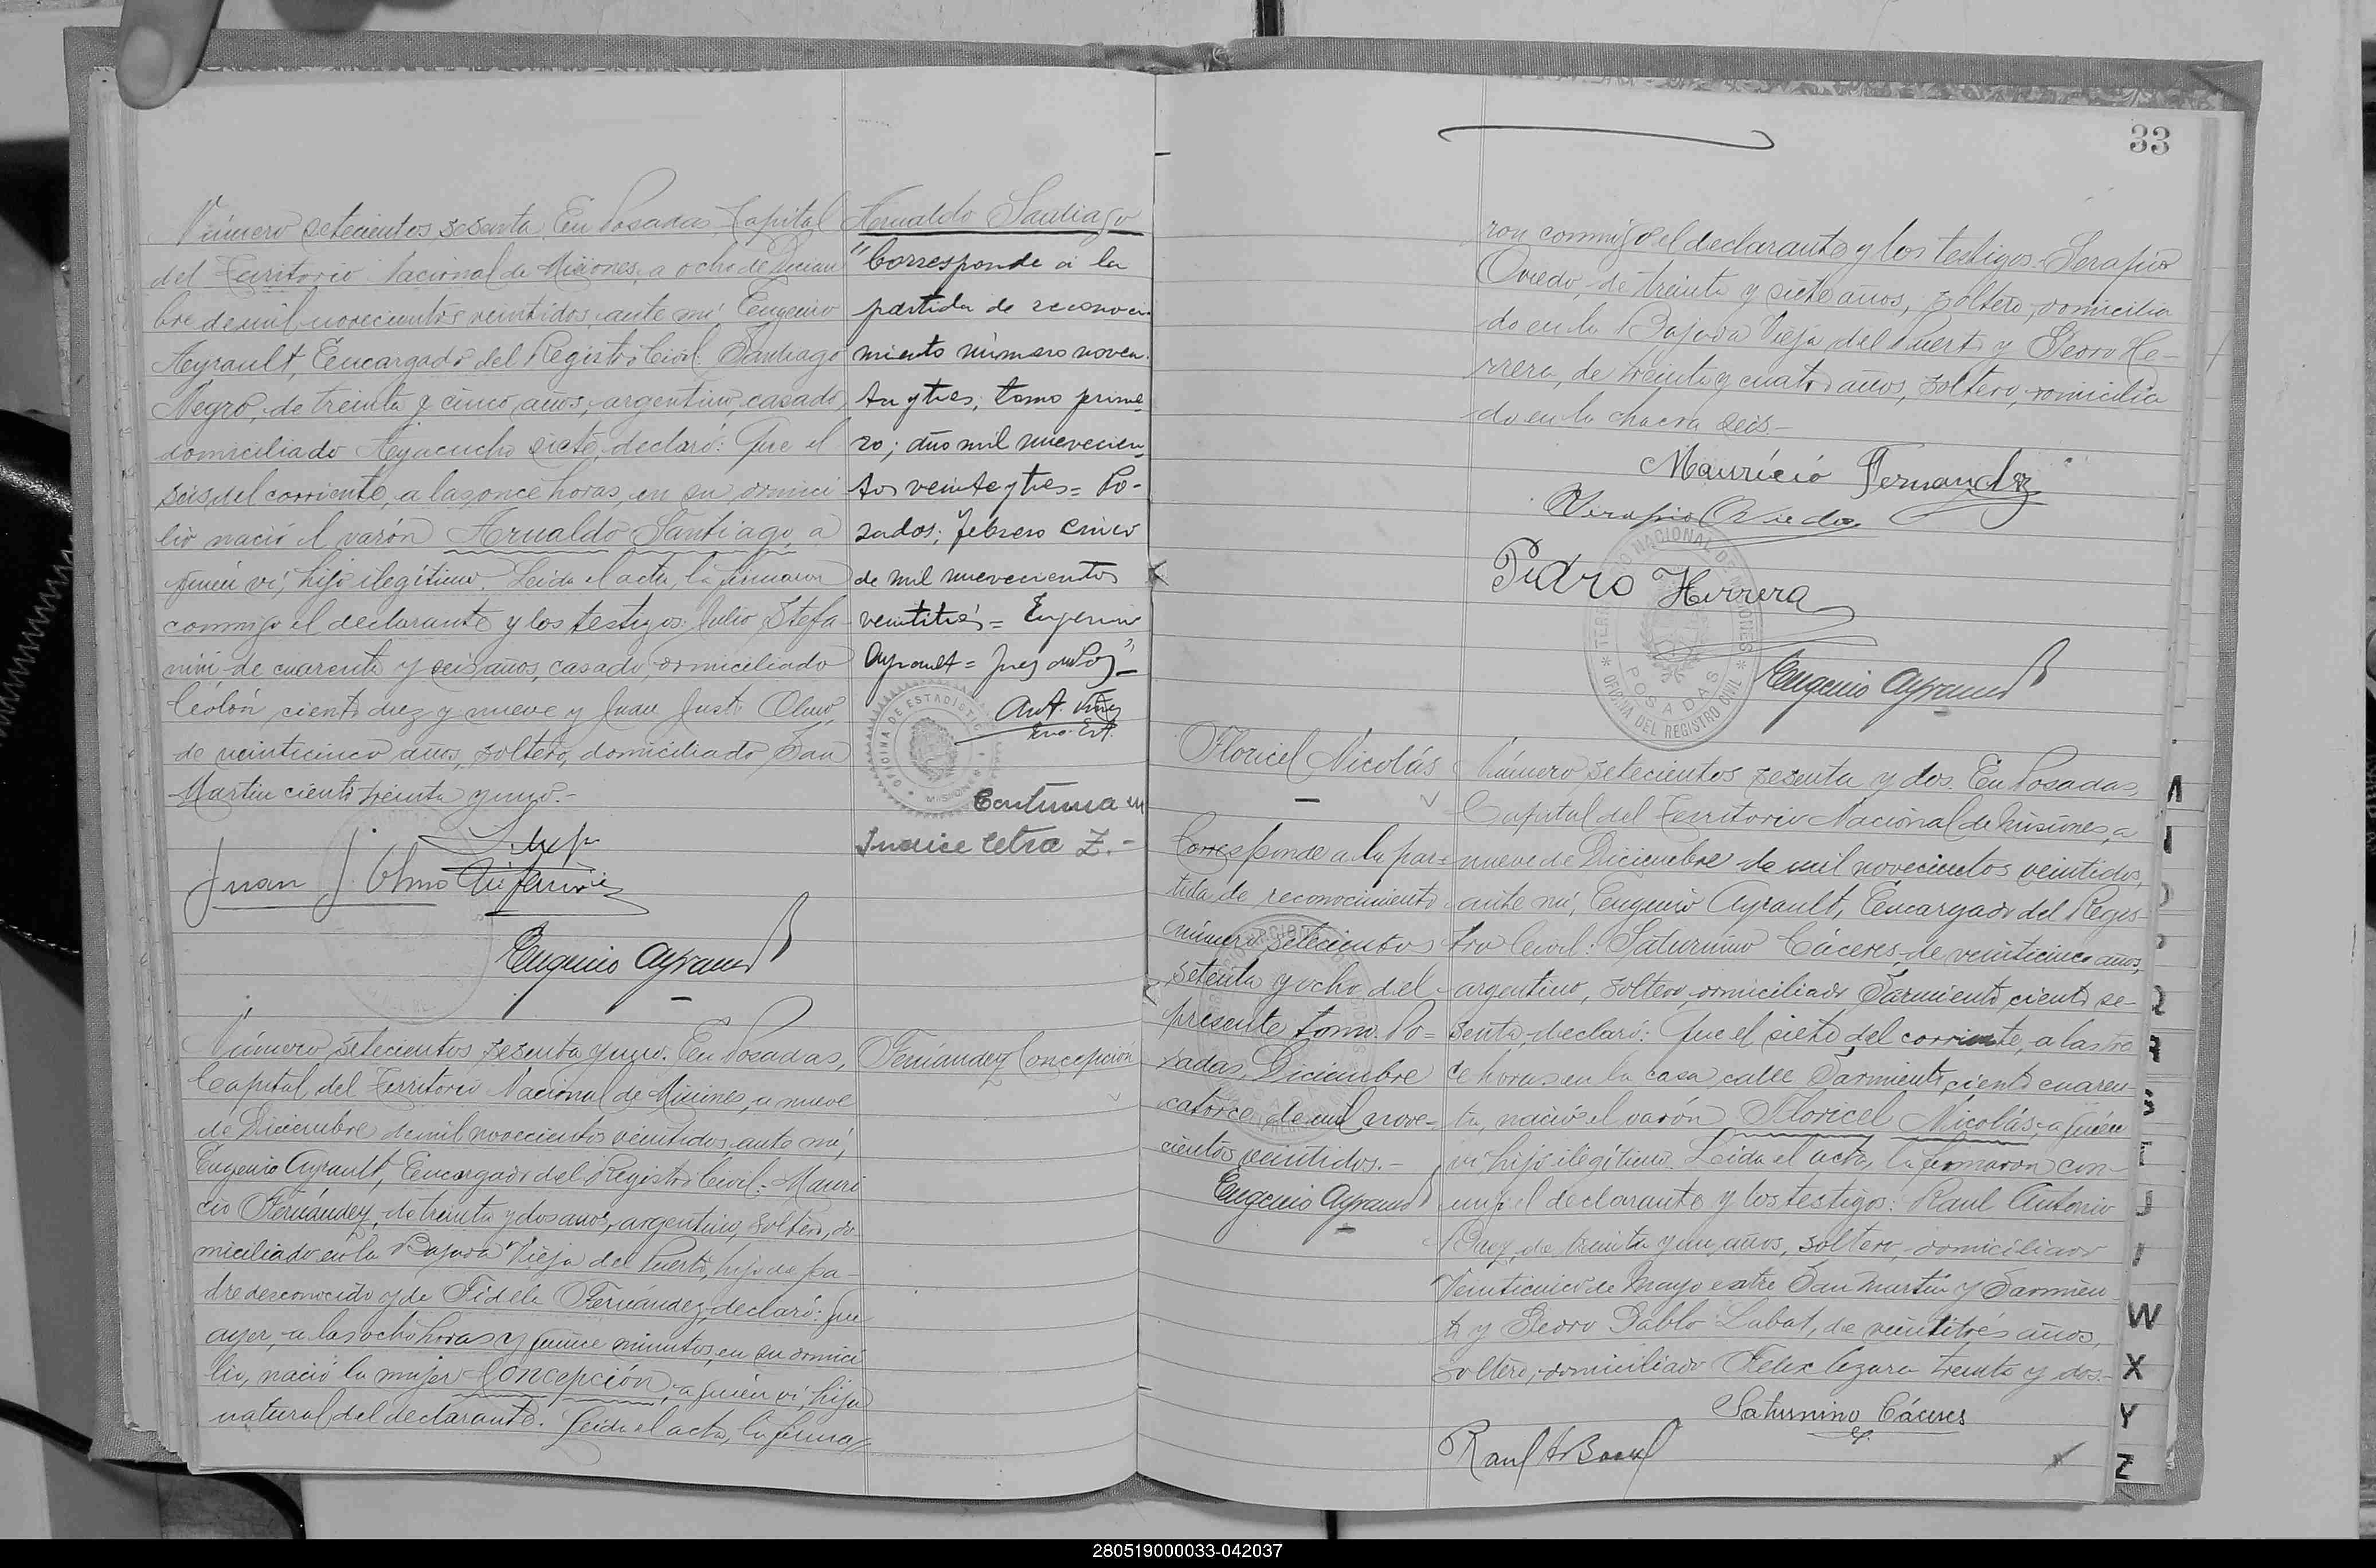 Número setecientos sesenta. En Posadas, Capital
del Territorio Nacional de Misiones, a ocho de Diciem
bre de mil novecientos veintidos, ante mi Eugenio
Ayrault, Encargado del Registro Civil. Santiago
Negro, de treinta y cinco años, argentino, casado,
domiciliado Ayacucho siete, declaró: Que el
seis del corriente, a las once horas, en su domici
lio nació el varón Arnaldo Santiago, a
quien ví, hijo ilegítimo. Leida el acta, la firmaron
conmigo el declarante y los testigos: Julio Stefa
nini de cuarenta y seis años, casado, domiciliado
Colón ciento diez y nueve y Juan Justo Olmo,
de veinticinco años, soltero, domiciliado San
Martin ciento treinta y uno.-
Juan J. Olmo
Eugenio Ayrault
Arnaldo Santiago
"Corresponde a la
partida de reconoci-
miento número noven-
ta y tres; tomo prime-
ro; año mil nuevecien-
tos veinte y tres = Po-
sadas; febrero cinco
de mil nuevecientos
veintitrés = Eugenio
Ayrault = Juez de Paz"-
OFICINA DE ESTADISTICA
MISIONES
Continua en
Indice letra Z.-
Número setecientos sesenta y uno. En Posadas,
Capital del Territorio Nacional de Misiones, a nueve
de Diciembre de mil novecientos veintidos, ante mí,
Eugenio Ayrault, Encargado del Registro Civil: Mauri
cio Fernández, de treinta y dos años, argentino, soltero, do
miciliado en la Bajada Vieja del Puerto, hijo de pa-
dre desconocido y de Fidela Fernández, declaró: que
ayer, a las ocho horas y quince minutos, en su domici
lio, nació la mujer Concepción, a quien ví, hija
natural del declarante. Leida el acta, la firma=
Fernández Concepción
33
ron conmigo el declarante y los testigos Serapio
Oviedo, de treinta y siete años, soltero, domicilia
do en la Bajada Vieja del Puerto y Pedro He-
rrera, de treinta y cuatro años, soltero, domicilia
do en la chacra seis-
Mauricio Fernandez
Serapio Oviedo
Pedro Herrera
TERRITORIO NACIONAL DE MISIONES
POSADAS
OFICINA DEL REGISTRO CIVIL
Eugenio Ayrault
Floricel Nicolás
Corresponde a la par=
tida de reconocimiento
número setecientos
setenta y ocho del
presente tomo. Po=
sadas, Diciembre
catorce de mil nove-
cientos veintidos.-
Eugenio Ayrault
Número setecientos sesenta y dos. En Posadas,
Capital del Territorio Nacional de Misiones, a
nueve de Diciembre de mil novecientos veintidos,
ante mí, Eugenio Ayrault, Encargado del Regis-
tro Civil: Saturnino Cáceres, de veinticinco años,
argentino, soltero, domiciliado Sarmiento ciento se-
senta, declaró: Que el siete del corriente, a las tre
ce horas en la casa calle Sarmiento ciento cuaren-
ta, nació el varón Floricel Nicolás, a quién
ví hijo ilegítimo. Leida el acta, la firmaron con-
migo el declarante y los testigos: Raul Antonio
de treinta y un años, soltero, domiciliado
Veinticinco de Mayo entre San Martín y Sarmien
to y Pedro Pablo Labat, de veintitrés años,
soltero, domiciliado Felix Azara treinta y dos.-
Saturnino Cáceres
Raul A
W
X
Y
Z
280519000033-042037